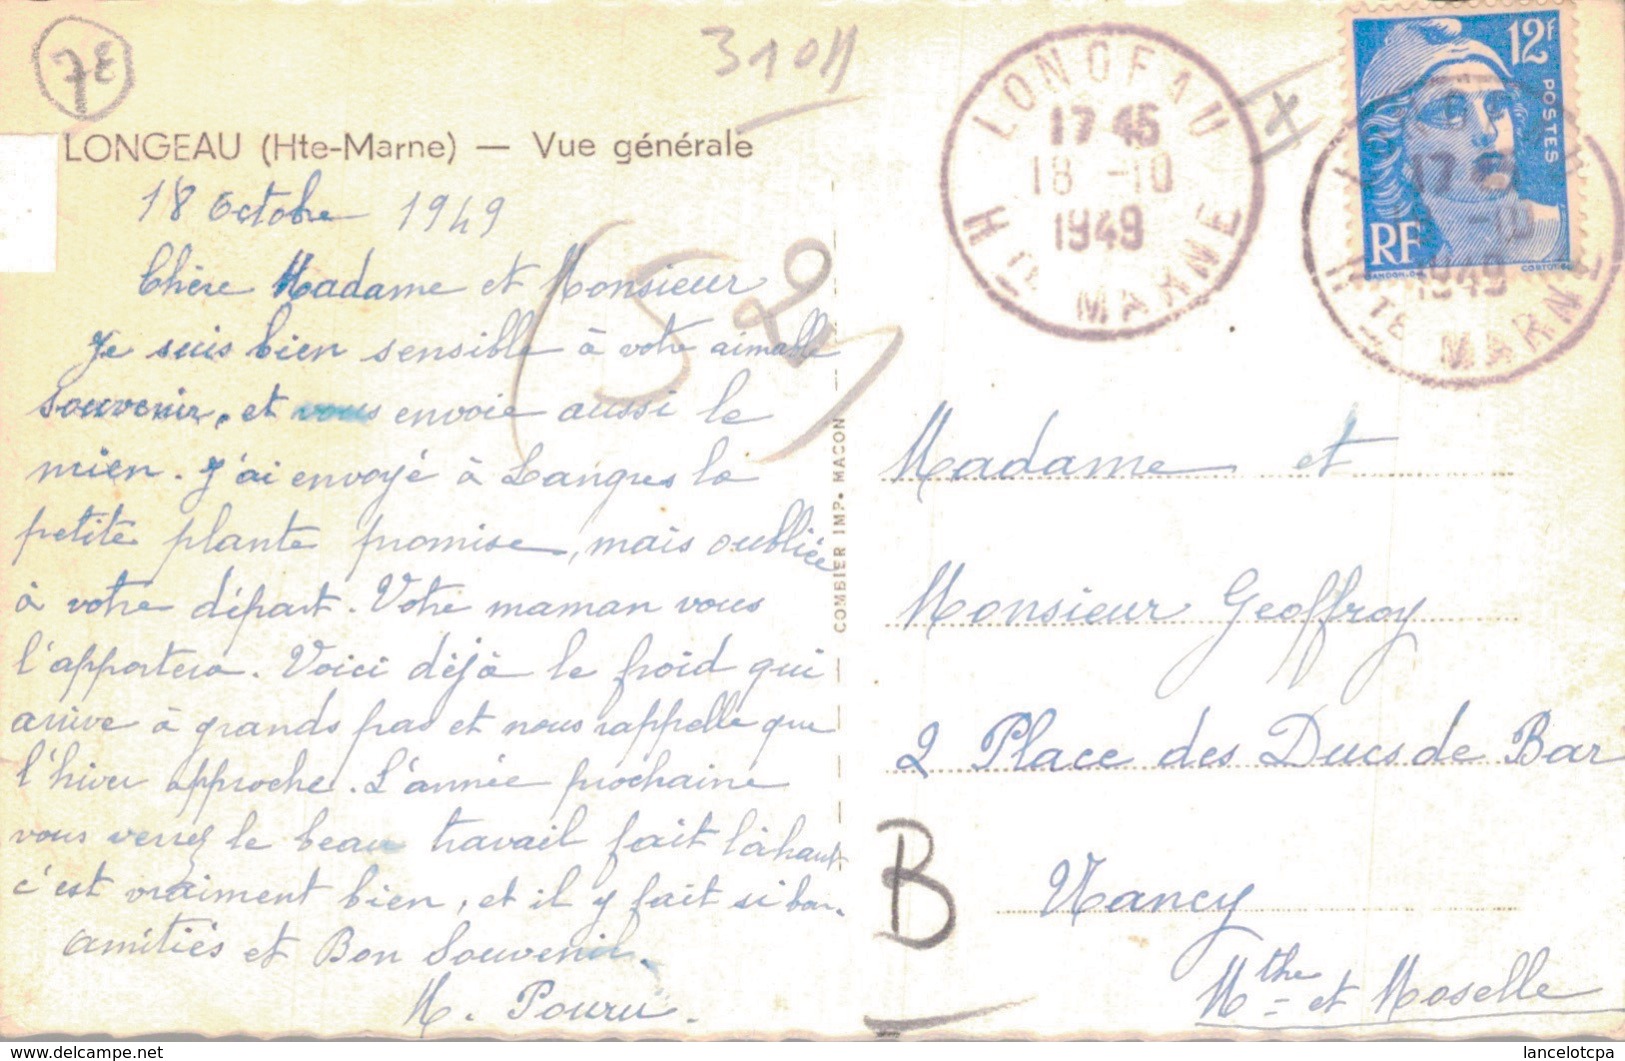 7E
310H
LONGEAU (Hte-Marne) — Vue générale
18 Octobre 1949
Chère Madame et Monsieur
Je suis bien sensible à votre aimable
souvenir, et vous envoie aussi le
mien. J'ai envoyé à Langres la
petite plante promise, mais oubliée
à votre départ. Votre maman vous
l'apportera. Voici déjà le froid qui
arrive à grands pas et nous rappelle que
l'hiver approche. L'année prochaine
vous verrez le beau travail fait là haut
c'est vraiment bien, et il y fait si bon.
Amitiés et Bon Souvenir.
M. Pouru.
(52)
COMBIER IMP. MACON
LONGEAU
17 45
18 -10
1949
HTE MARNE
12F
POSTES
RF
GANDON-DEL
CORTOT-SC
17 45
-10
1949
HTE MARNE
Madame et
Monsieur Geoffroy
2 Place des Ducs de Bar
B
Nancy
Mthe et Moselle
www.delcampe.net
lancelotcpa